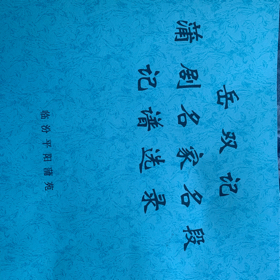 岳双记
蒲剧名家名段
记谱选录
临汾平阳蒲苑